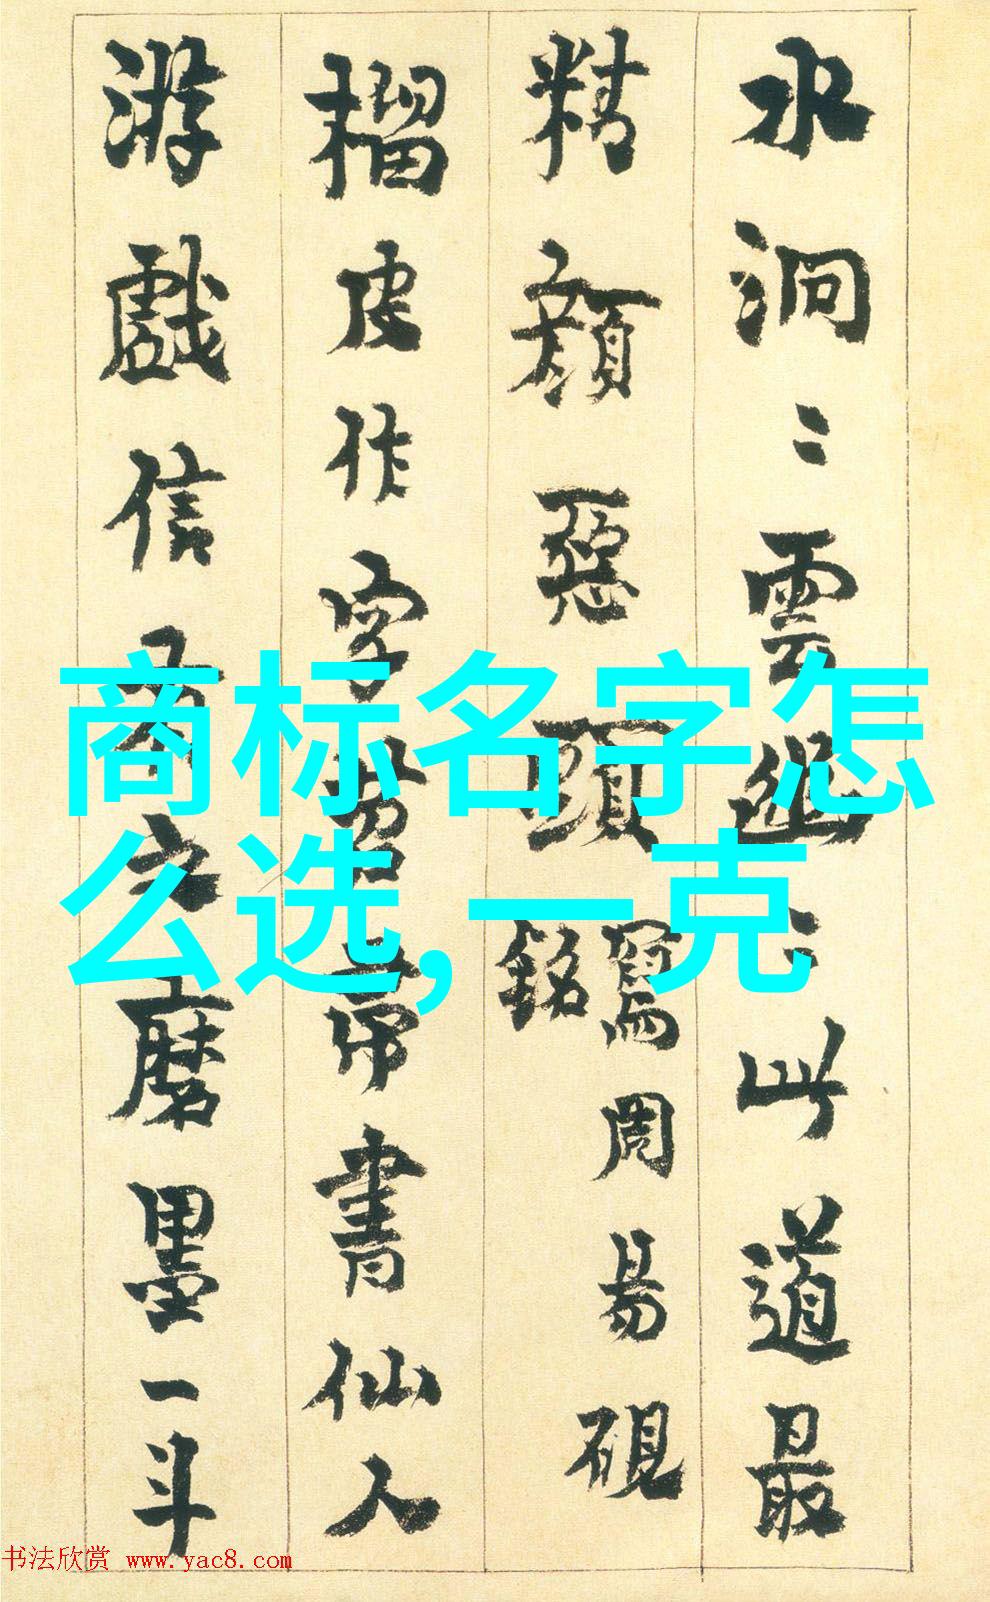 水洞〻雲〻此道最
精顔惡頭
寫周易硯
銘
榴皮作字苕帚書仙人
游戲信有之磨墨一斗
商标名字怎
么选,一克
书法欣赏 www.yac8.com